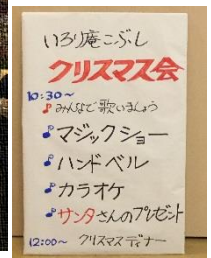 いろり庵こぶし
クリスマス会
10:30〜
♪みんなで歌いましょう
♪マジックショー
♪ハンドベル
♪カラオケ
♪サンタさんのプレゼント
12:00〜 クリスマスディナー